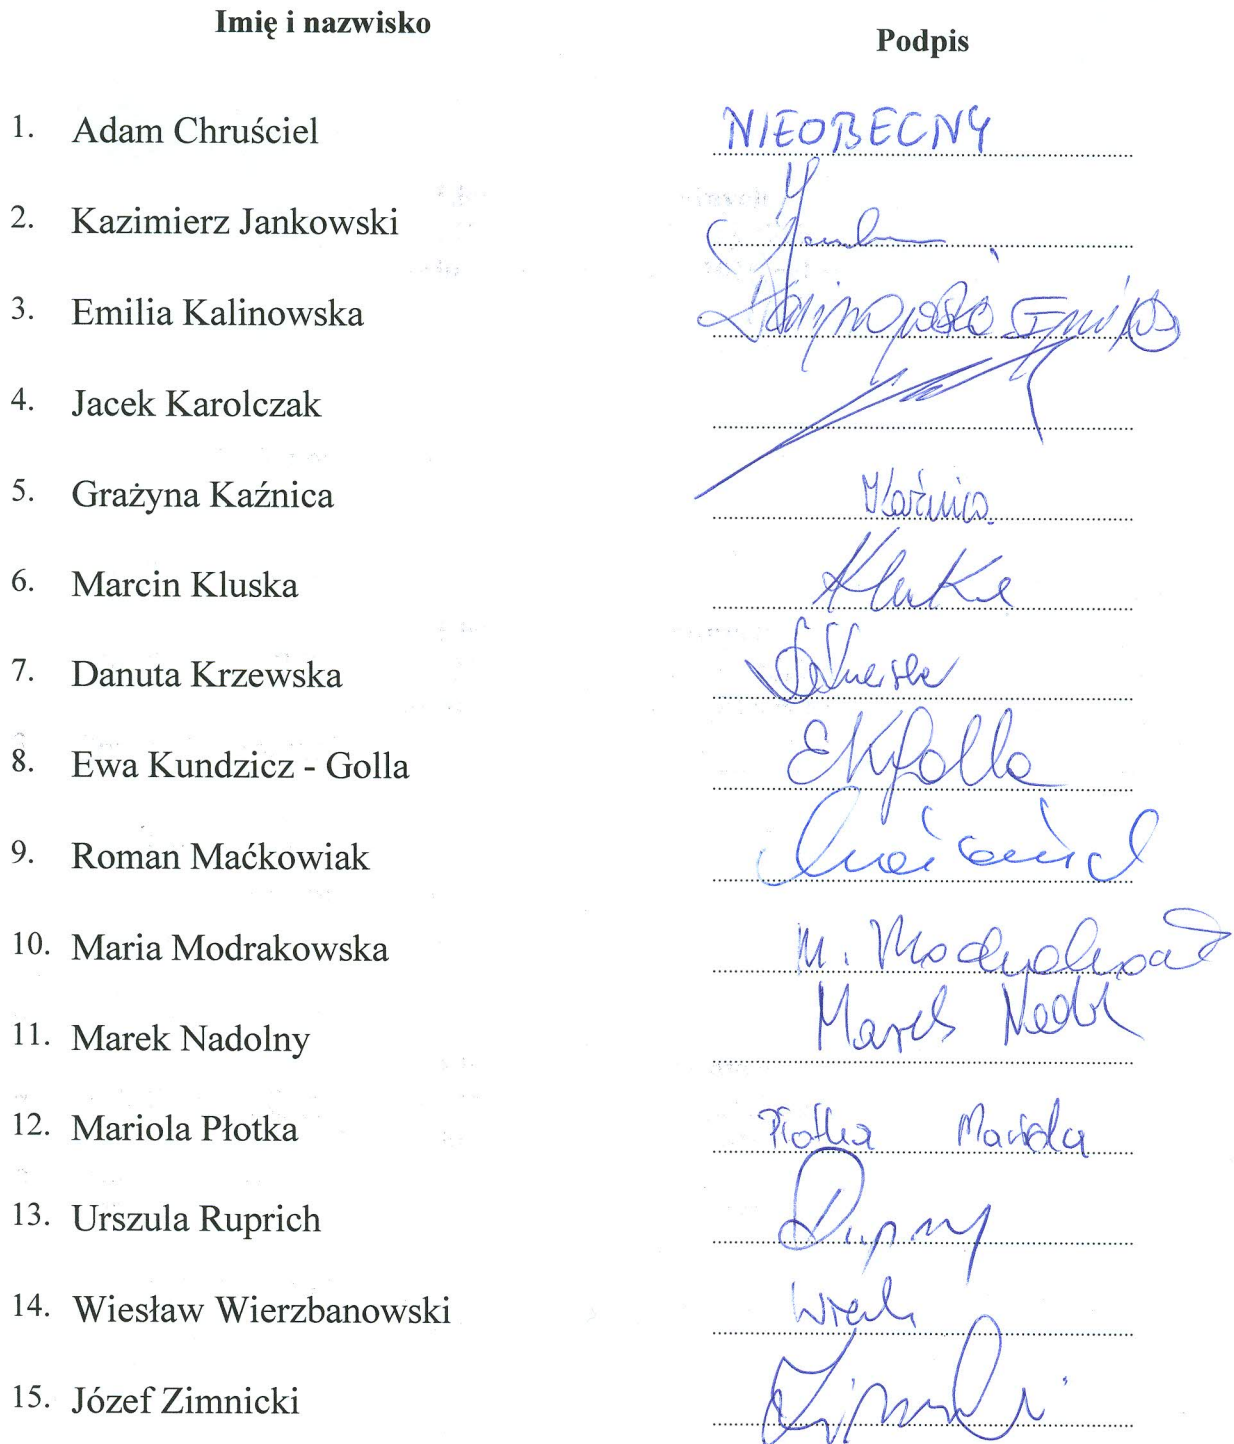 Imię i nazwisko
Podpis
1. Adam Chruściel NIEOBECNY
2. Kazimierz Jankowski
3. Emilia Kalinowska
4. Jacek Karolczak
5. Grażyna Kaźnica Kaźnica
6. Marcin Kluska
7. Danuta Krzewska
8. Ewa Kundzicz - Golla EKGolla
9. Roman Maćkowiak
10. Maria Modrakowska M.
11. Marek Nadolny Marek
12. Mariola Płotka Płotka Mariola
13. Urszula Ruprich
14. Wiesław Wierzbanowski
15. Józef Zimnicki